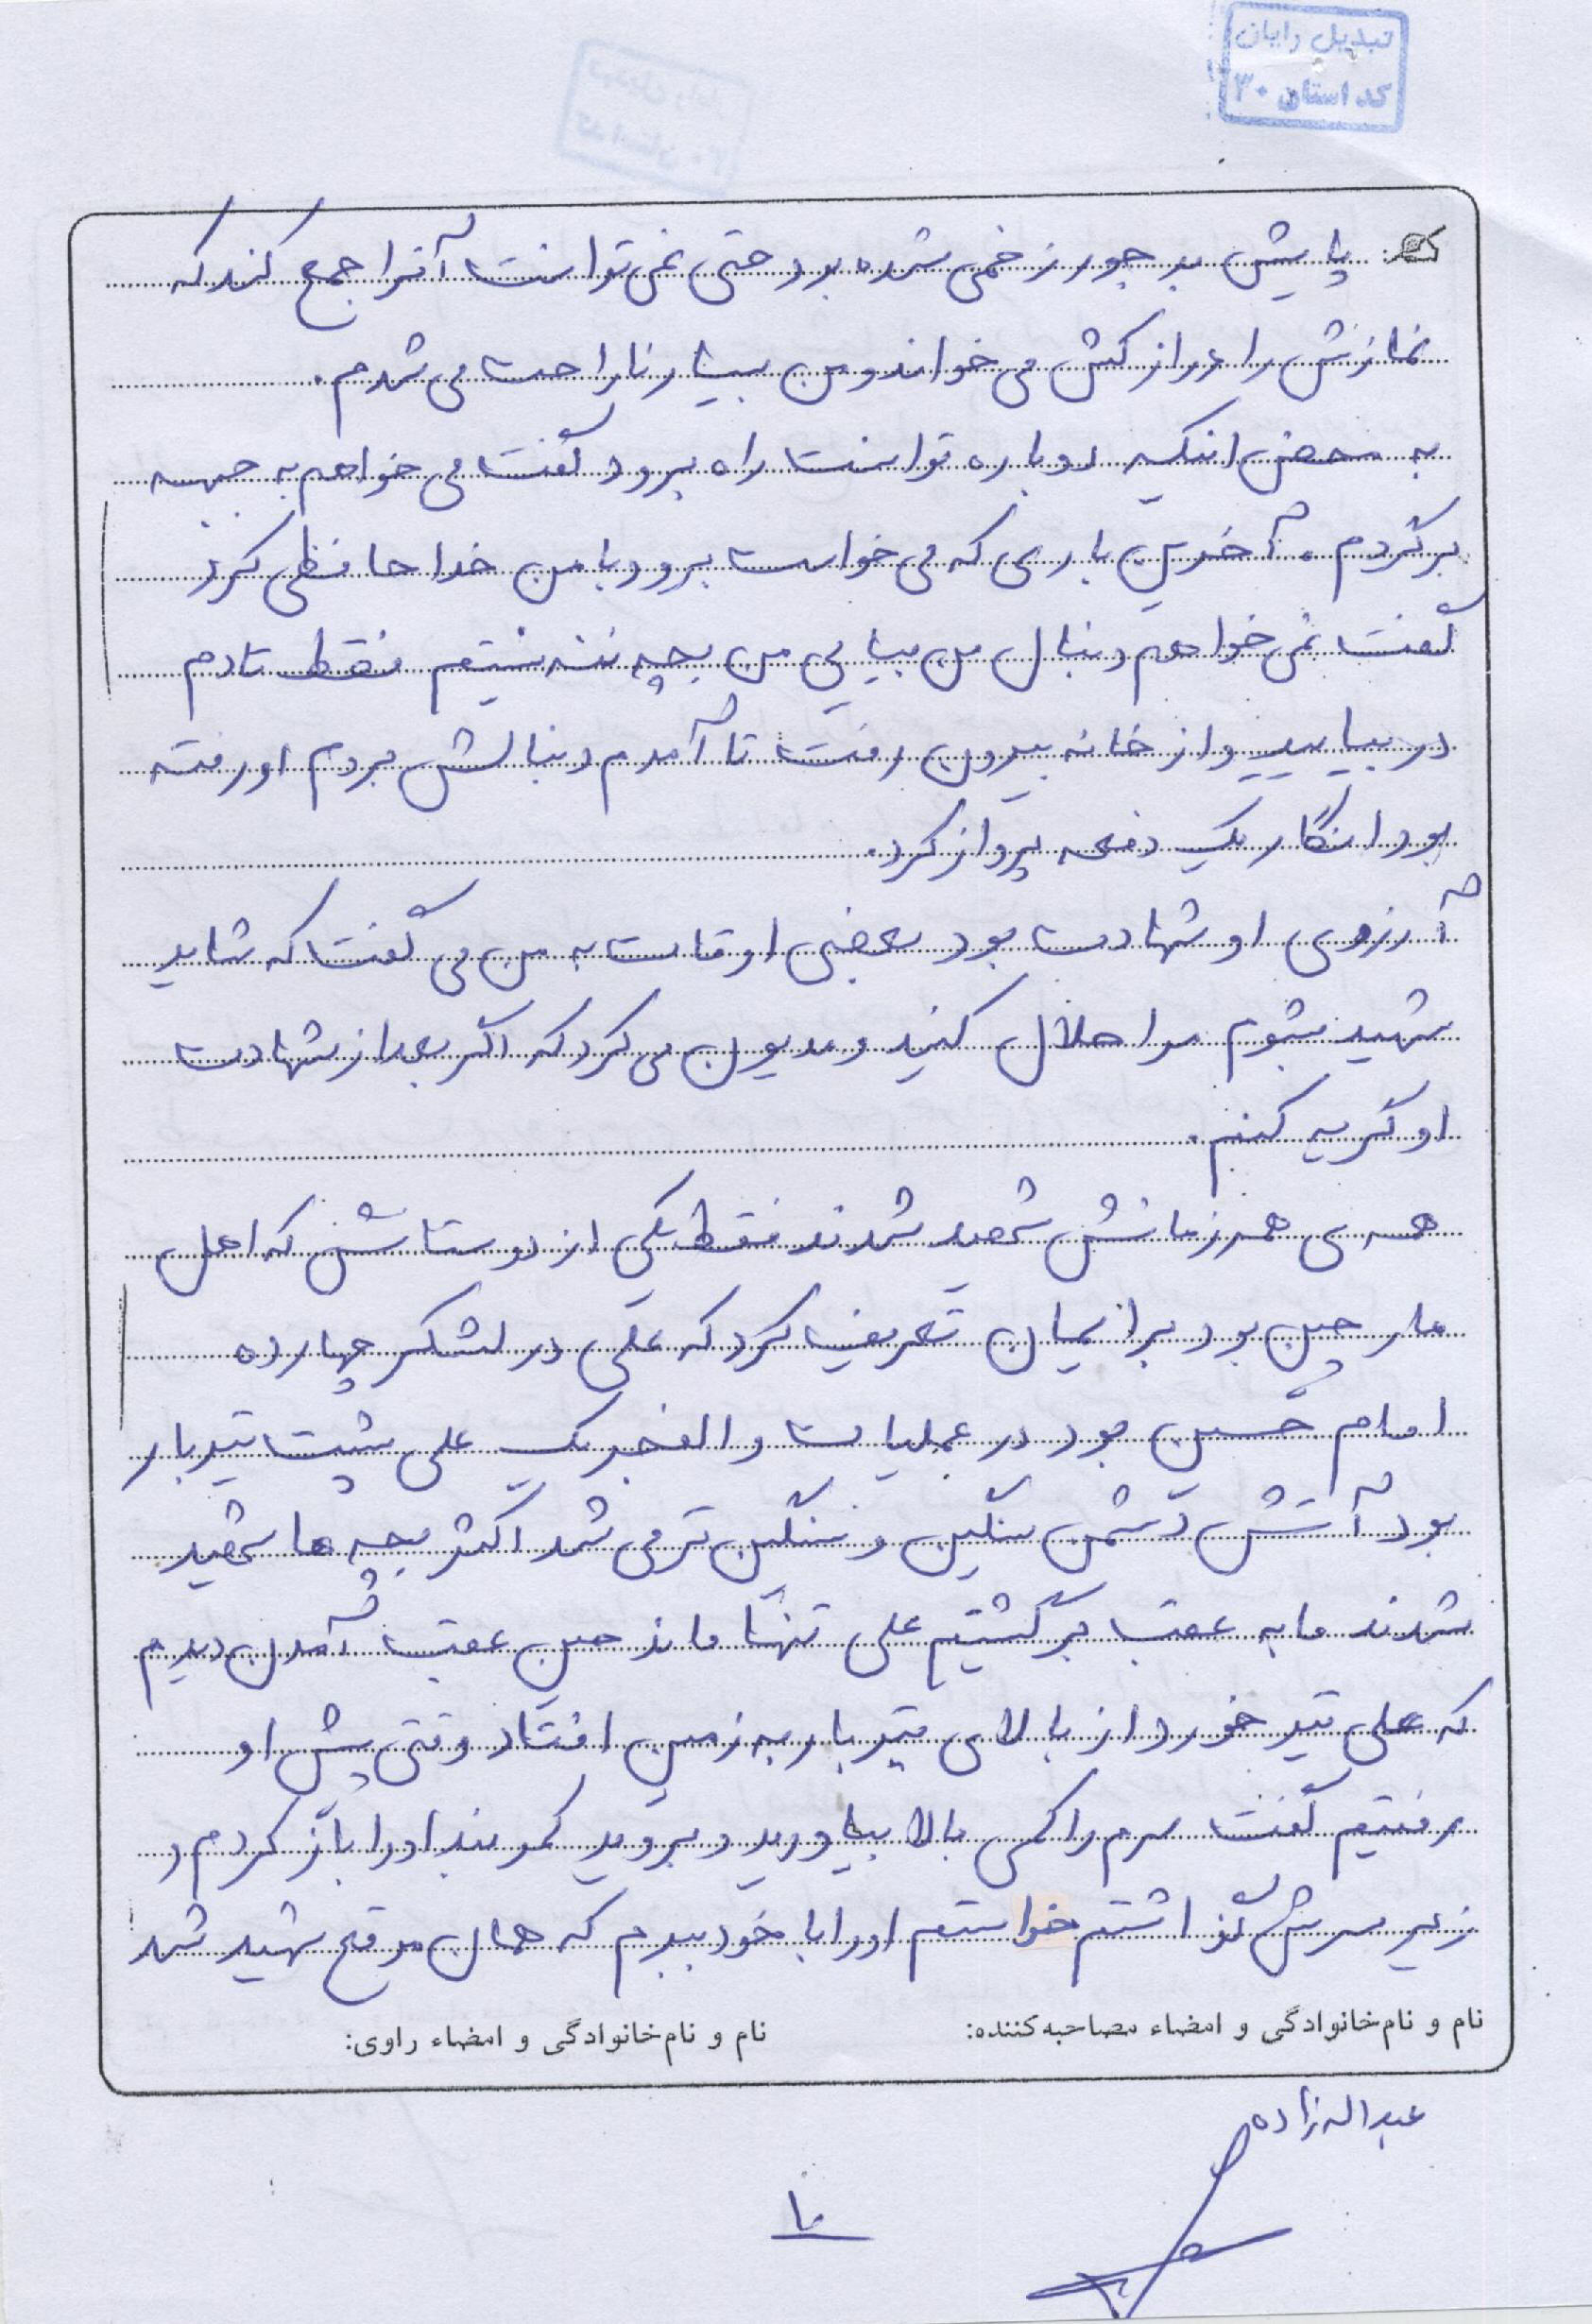 تبدیل رایان
کد استان ۳۰
پایش بد جور زخمی شده بود حتی نمی توانست آنرا جمع کند که
نمازش را دراز کش می خواند و من بسیار ناراحت می شدم.
به محض اینکه دوباره توانست راه برود گفت می خواهم به جبهه
برگردم. آخرین باری که می خواست برود با من خداحافظی کرد
گفت نمی خواهم دنبال من بیایی من بچه ننه نیستم فقط تا دم
در بیایید و از خانه بیرون رفت تا آمدم دنبالش بروم او رفته
بود انگار یک دفعه پرواز کرد.
آرزوی او شهادت بود بعضی اوقات به من می گفت که شاید
شهید بشوم مرا حلال کنید و مدیون می کرد که اگر بعد از شهادت
او گریه کنیم.
همه ی همرزمانش شهید شدند فقط یکی از دوستانش که اهل
مارچین بود برایمان تعریف کرد که علی در لشکر چهارده
امام حسین بود در عملیات والفجر یک علی پشت تیربار
بود آتش دشمن سنگین و سنگین تر می شد اکثر بچه ها شهید
شدند ما به عقب برگشتیم علی تنها ماند حین عقب آمدن دیدم
که علی تیر خورد از بالای تیربار به زمین افتاد وقتی پیش او
رفتیم گفت سرم را کمی بالا بیاورید و بروید کمربند او را باز کردم و
زیر سرش گذاشتم خواستم او را با خود ببرم که همان موقع شهید شد
نام و نام خانوادگی و امضاء مصاحبه کننده: نام و نام خانوادگی و امضاء راوی:
عبداله زاده
۱۰